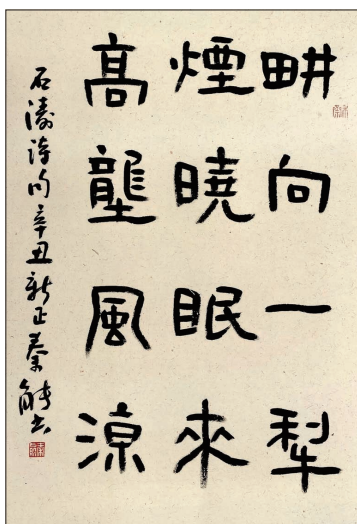 畊向一犁
煙曉眠來
高壟風涼
石濤詩句辛丑新正秦能书